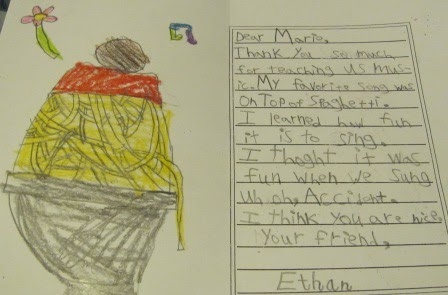 Dear Marie,
Thank you so much
for teaching us mus-
ic. My favorite song was
On Top of Spaghetti.
I learned how fun
it is to sing.
I thoght it was
fun when we sang
Uh, oh, Accident.
I think you are nice,
Your friend,
Ethan